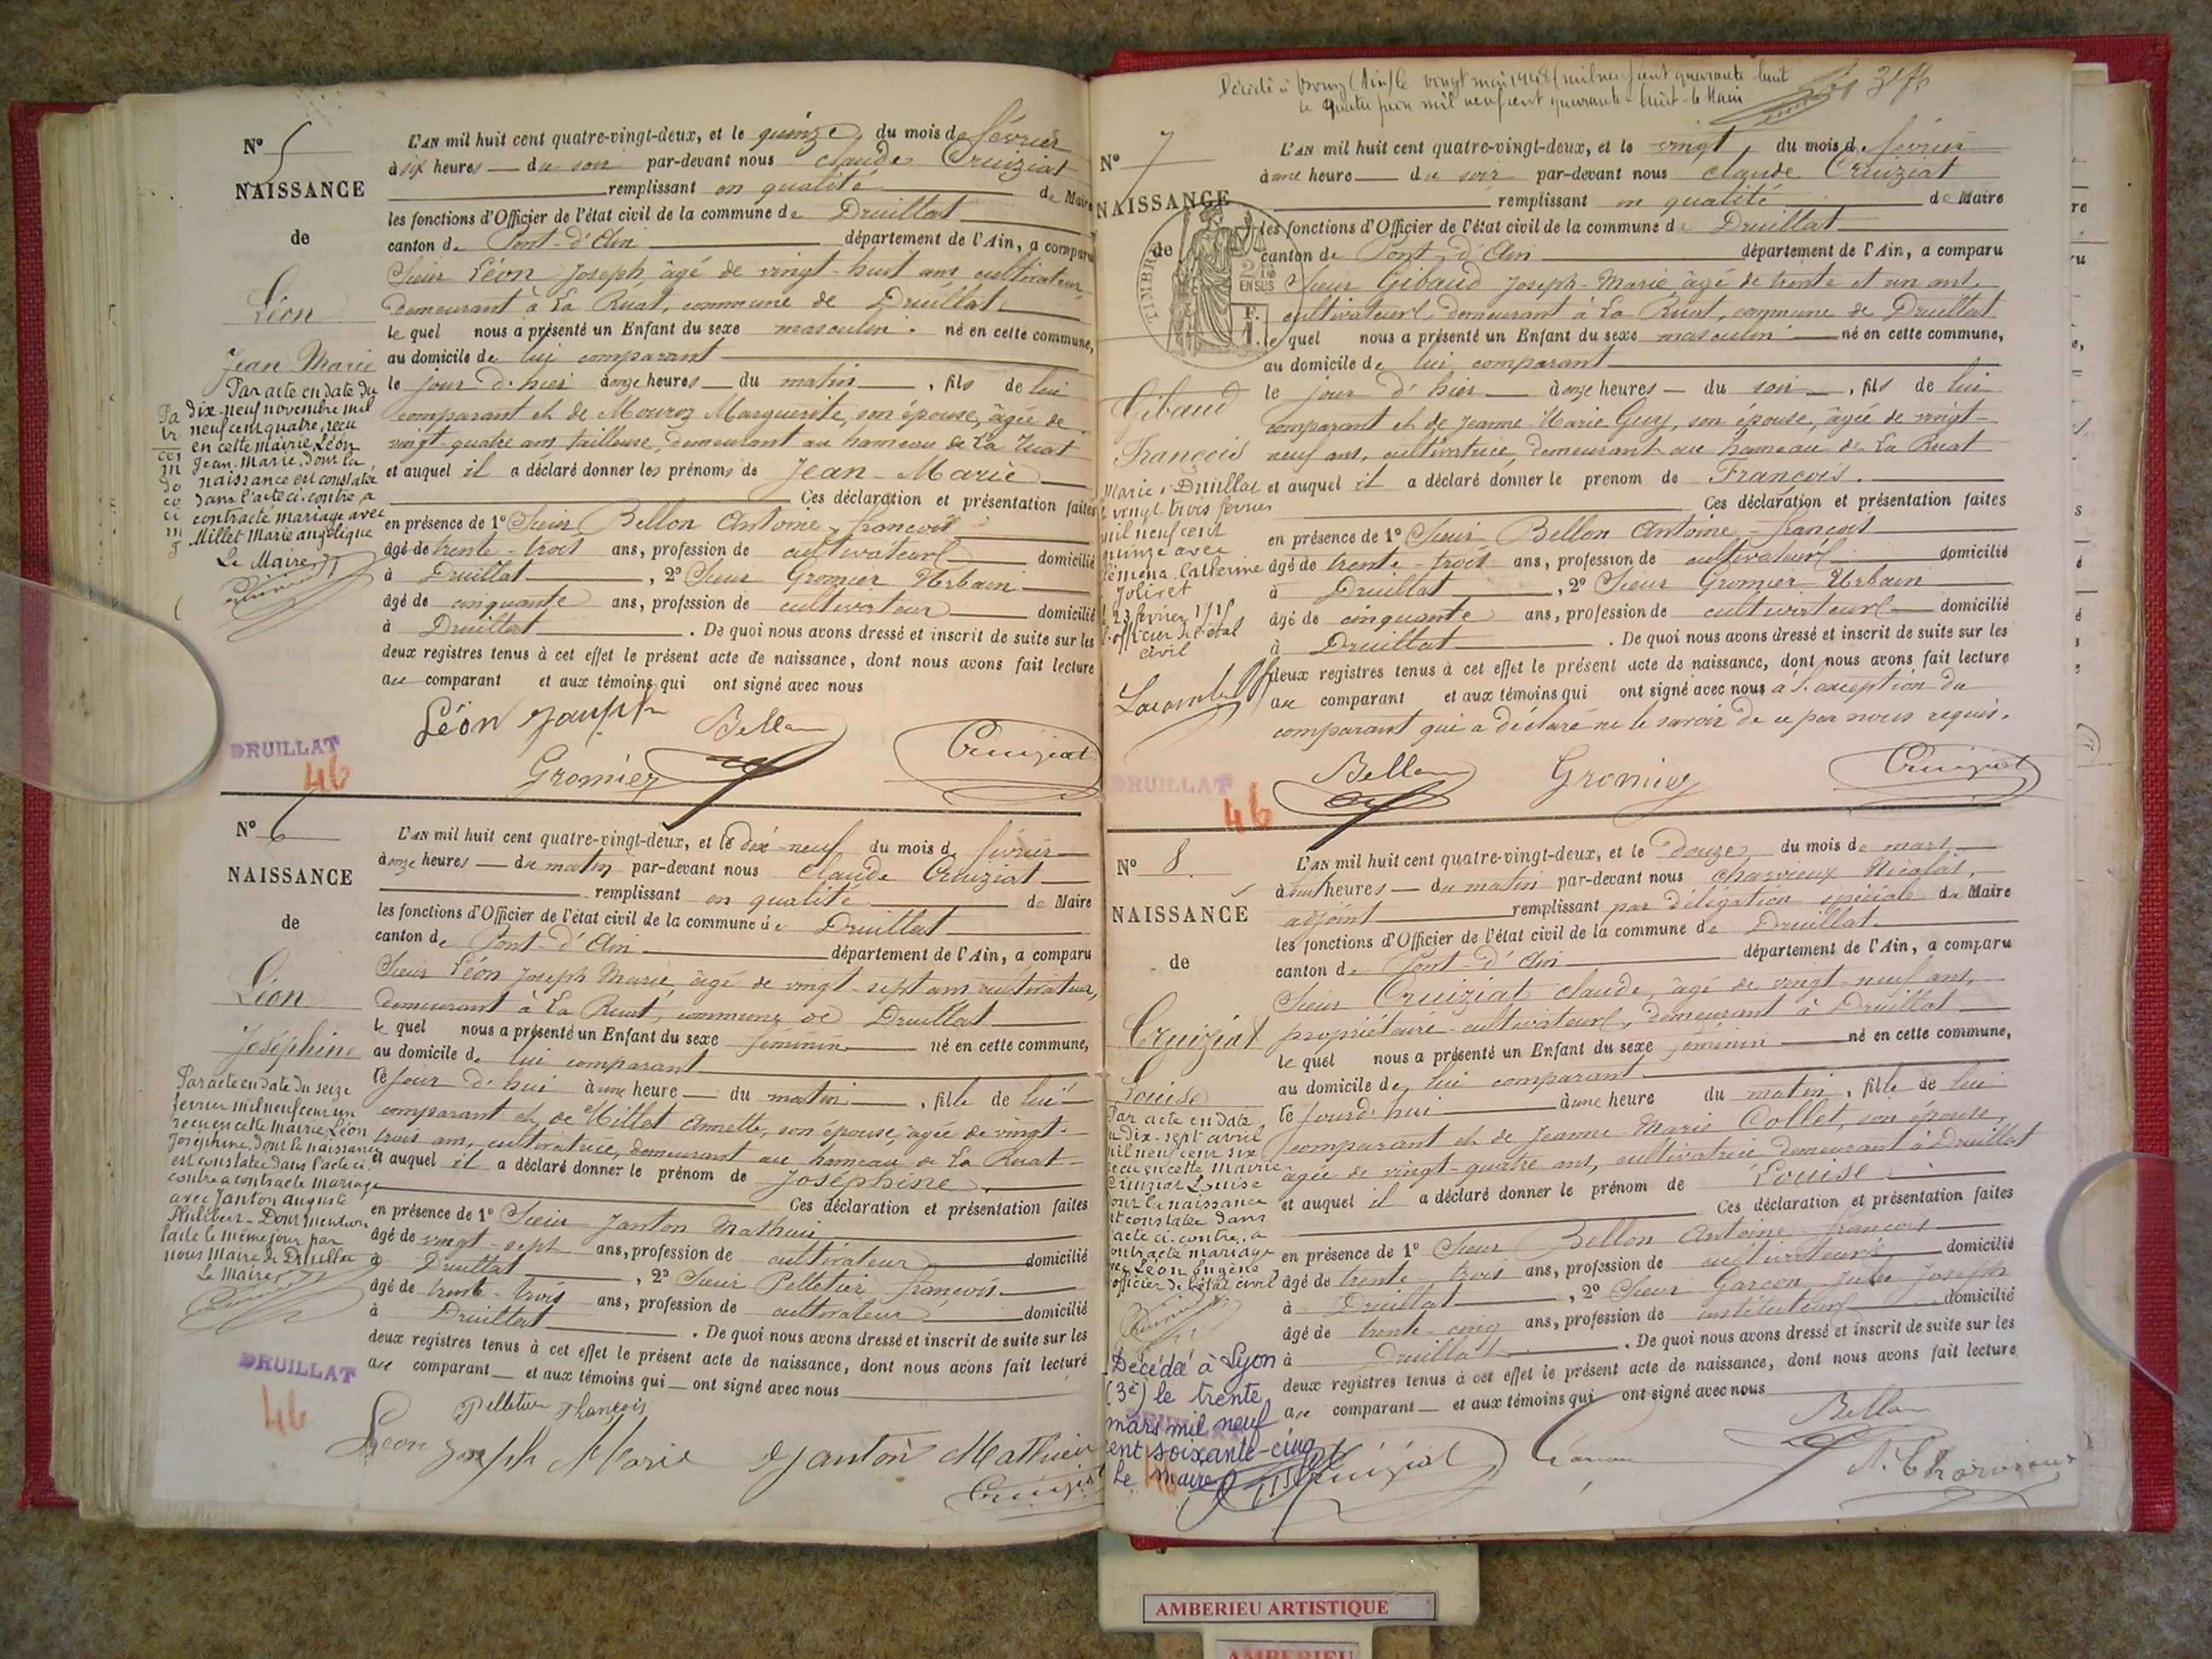 N° 5
NAISSANCE
de
Léon
Jean Marie
Par acte en date du
dix-neuf novembre mil
neuf cent quatre, reçu
en cette mairie, Léon
Jean-Marie, dont la
naissance est constatée
dans l'acte ci-contre, a
contracté mariage avec
Millet Marie angélique
Le Maire,
L'AN mil huit cent quatre-vingt-deux, et le quinze, du mois de février
à six heures — du soir par-devant nous Claude Cruiziat
remplissant en qualité de Maire
les fonctions d'Officier de l'état civil de la commune de Druillat
canton de Pont-d'Ain département de l'Ain, a comparu
Sieur Léon Joseph, âgé de vingt-huit ans, cultivateur,
demeurant à La Ruat, commune de Druillat,
le quel nous a présenté un Enfant du sexe masculin né en cette commune,
au domicile de lui comparant
le jour d'hier à onze heures — du matin —, fils de lui
comparant et de Mouroz Marguerite, son épouse, âgée de
vingt-quatre ans, tailleuse, demeurant au hameau de La Ruat
et auquel il a déclaré donner les prénoms de Jean-Marie
Ces déclaration et présentation faites
en présence de 1° Sieur Bellon Antoine-françois
âgé de trente-trois ans, profession de cultivateur domicilié
à Druillat, 2° Sieur Gromier Urbain
âgé de cinquante ans, profession de cultivateur domicilié
à Druillat. De quoi nous avons dressé et inscrit de suite sur les
deux registres tenus à cet effet le présent acte de naissance, dont nous avons fait lecture
au comparant et aux témoins qui ont signé avec nous
Léon Joseph Bellon
Gromier Cruiziat
DRUILLAT
46
N° 6
NAISSANCE
de
Léon
Joséphine
Par acte en date du seize
fevrier mil neuf cent un
reçu en cette mairie, Léon
Joséphine, dont la naissance
est constatée dans l'acte ci-
contre a contracté mariage
avec Janton auguste
Philibert - Dont mention
faite le même jour par
nous Maire de Druillat
Le Maire,
L'AN mil huit cent quatre-vingt-deux, et le dix-neuf du mois de février
à onze heures — du matin par-devant nous Claude Cruiziat
remplissant en qualité de Maire
les fonctions d'Officier de l'état civil de la commune de Druillat
canton de Pont-d'Ain département de l'Ain, a comparu
Sieur Léon Joseph Marie, âgé de vingt-sept ans cultivateur,
demeurant à La Ruat, commune de Druillat
le quel nous a présenté un Enfant du sexe féminin né en cette commune,
au domicile de lui comparant
le jour d'hui à une heure — du matin —, fille de lui
comparant et de Millet Annette, son épouse, âgée de vingt-
trois ans, cultivatrice, demeurant au hameau de La Ruat
et auquel il a déclaré donner le prénom de Joséphine.
Ces déclaration et présentation faites
en présence de 1° Sieur Janton Mathieu
âgé de vingt-sept ans, profession de cultivateur domicilié
à Druillat, 2° Sieur Pelletier françois
âgé de trente-trois ans, profession de cultivateur domicilié
à Druillat. De quoi nous avons dressé et inscrit de suite sur les
deux registres tenus à cet effet le présent acte de naissance, dont nous avons fait lecture
au comparant — et aux témoins qui — ont signé avec nous
Pelletier François
Leon Joseph Marie Janton Mathieu
Cruiziat
DRUILLAT
46
Décédé à Bourg (Ain) le vingt mai 1948 (mil neuf cent quarante huit
le quatre juin mil neuf cent quarante-huit - le Maire
N° 7
NAISSANCE
de
TIMBRE
2/10 EN SUS
F.
Gibaud
François
Marié à Druillat
le vingt trois fevrier
mil neuf cent
quinze avec
Catherine
Joliret
23 février 1915
l'officier de l'état
civil
L'AN mil huit cent quatre-vingt-deux, et le vingt, du mois de février
à une heure — du soir par-devant nous Claude Cruiziat
remplissant en qualité de Maire
les fonctions d'Officier de l'état civil de la commune de Druillat
canton de Pont-d'Ain département de l'Ain, a comparu
Sieur Gibaud Joseph-Marie âgé de trente et un ans,
cultivateur, demeurant à La Ruat, commune de Druillat
le quel nous a présenté un Enfant du sexe masculin né en cette commune,
au domicile de lui comparant
le jour d'hier à onze heures — du soir —, fils de lui
comparant et de Jeanne-Marie Guy, son épouse, âgée de vingt-
neuf ans, cultivatrice, demeurant au hameau de La Ruat
et auquel il a déclaré donner le prenom de François.
Ces déclaration et présentation faites
en présence de 1° Sieur Bellon Antoine-françois
âgé de trente-trois ans, profession de cultivateur domicilié
à Druillat, 2° Sieur Gromier Urbain
âgé de cinquante ans, profession de cultivateur domicilié
à Druillat. De quoi nous avons dressé et inscrit de suite sur les
deux registres tenus à cet effet le présent acte de naissance, dont nous avons fait lecture
au comparant et aux témoins qui ont signé avec nous à l'exception du
comparant qui a déclaré ne le savoir de ce par nous requis.
Bellon Gromier Cruiziat
DRUILLAT
46
N° 8.
NAISSANCE
de
Cruiziat
Louise
Par acte en date
du dix-sept avril
mil neuf cent six
reçu en cette mairie
Cruiziat Louise
dont la naissance
est constatée dans
l'acte ci-contre, a
contracté mariage
avec Léon Eugène
l'officier de l'état civil
Décédée à Lyon
(3e) le trente
mars mil neuf
cent soixante-cinq
Le Maire
L'AN mil huit cent quatre-vingt-deux, et le douze, du mois de mars,
à huit heures — du matin par-devant nous Charvieux Nicolas,
adjoint remplissant par délégation spéciale du Maire
les fonctions d'Officier de l'état civil de la commune de Druillat.
canton de Pont-d'Ain département de l'Ain, a comparu
Sieur Cruiziat Claude, âgé de vingt-neuf ans,
propriétaire-cultivateur, demeurant à Druillat
le quel nous a présenté un Enfant du sexe féminin né en cette commune,
au domicile de lui comparant
le jourd'hui à une heure du matin, fille de lui
comparant et de Jeanne Marie Collet, son épouse,
âgée de vingt-quatre ans, cultivatrice demeurant à Druillat
et auquel il a déclaré donner le prénom de Louise
Ces déclaration et présentation faites
en présence de 1° Sieur Bellon Antoine-françois
âgé de trente trois ans, profession de cultivateur domicilié
à Druillat, 2° Sieur Garcon Jules Joseph
âgé de trente-cinq ans, profession de instituteur domicilié
à Druillat. De quoi nous avons dressé et inscrit de suite sur les
deux registres tenus à cet effet le présent acte de naissance, dont nous avons fait lecture
au comparant — et aux témoins qui ont signé avec nous
Bellon
Cruiziat Garcon N. Charvieux
46
AMBERIEU ARTISTIQUE
AMBERIEU